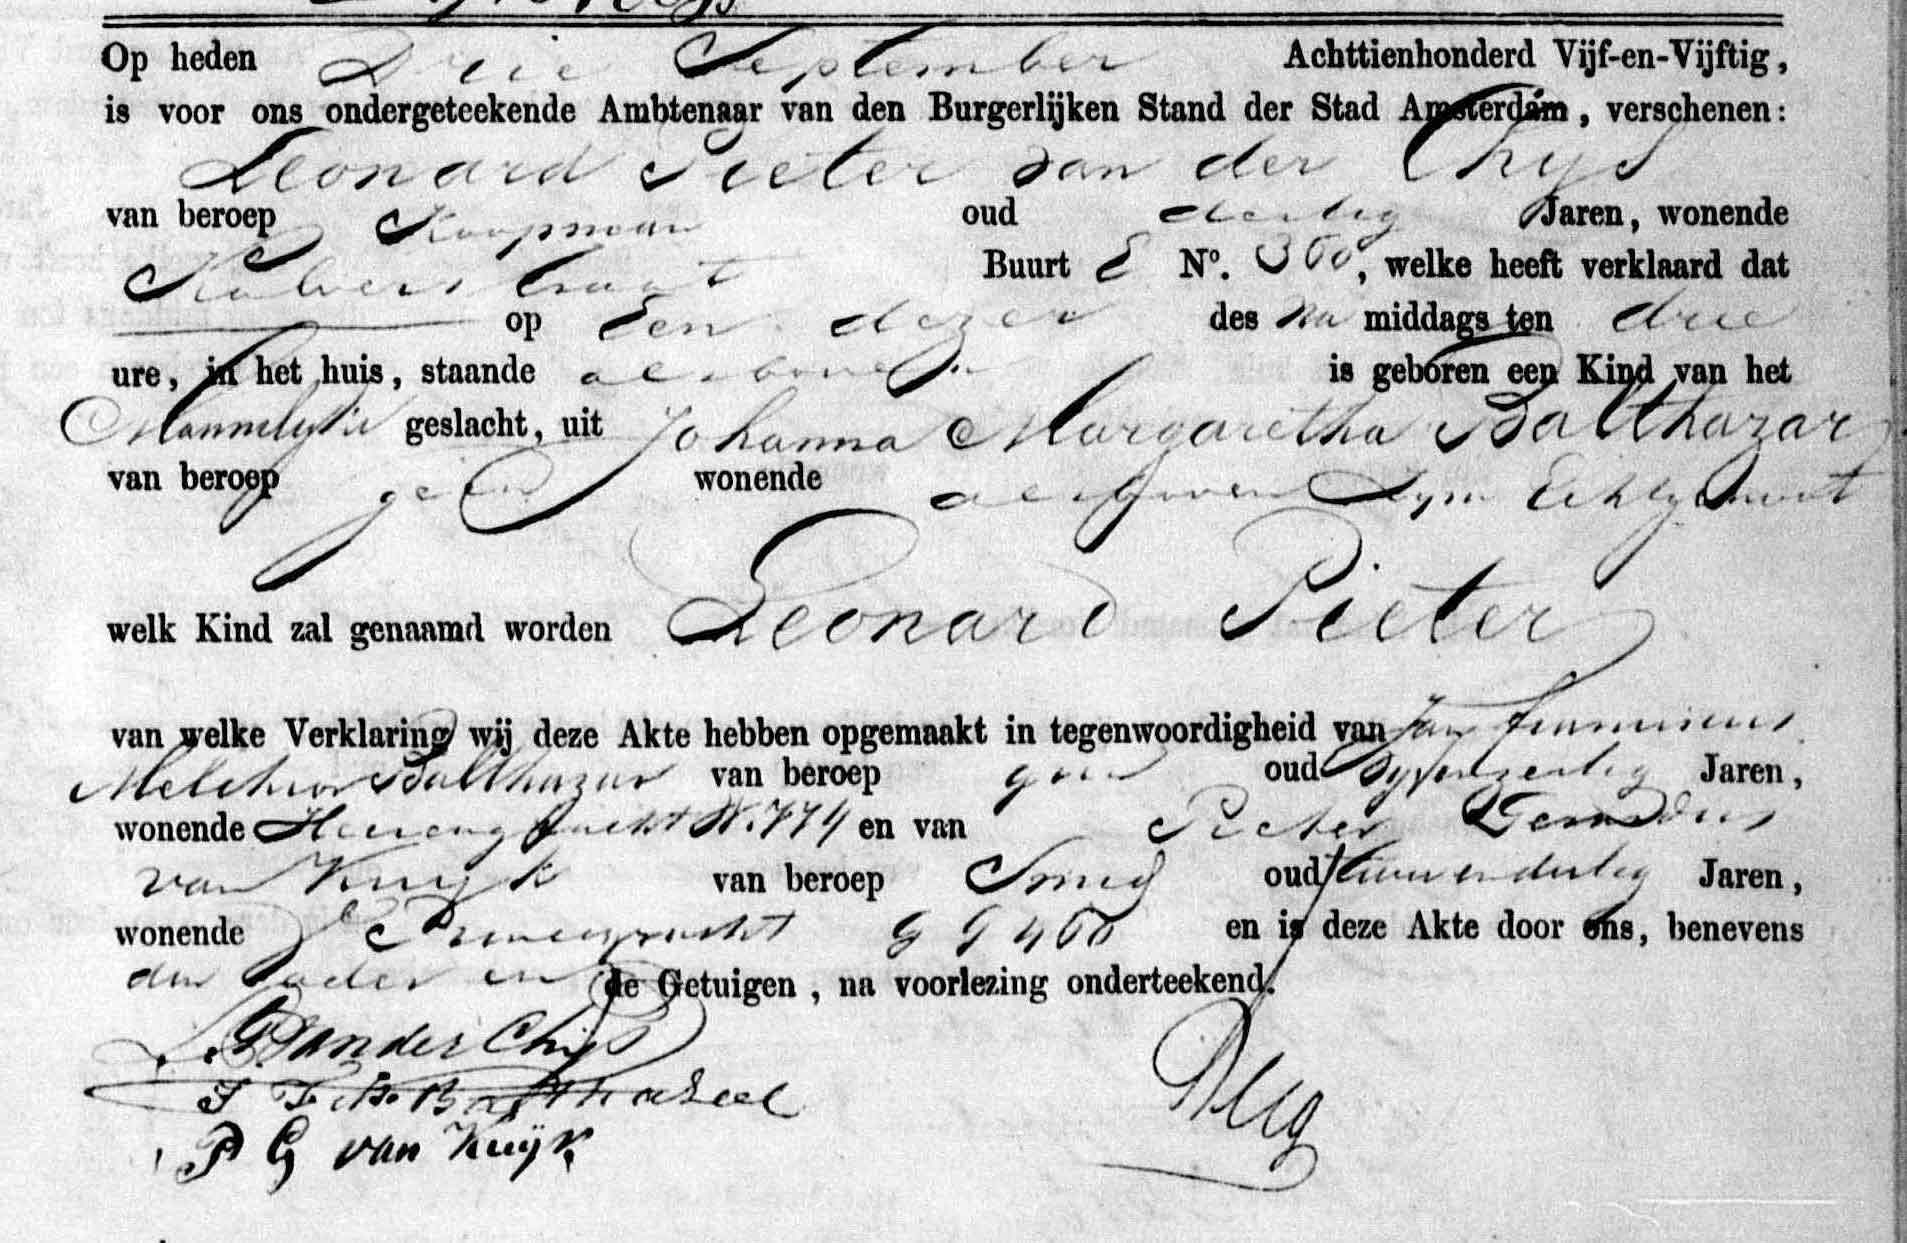 Op heden Drie September Achttienhonderd Vijf-en-Vijftig,
is voor ons ondergeteekende Ambtenaar van den Burgerlijken Stand der Stad Amsterdam, verschenen:
Leonard Pieter van der Chys
van beroep Koopman oud dertig Jaren, wonende
Kalverstraat Buurt E No. 360, welke heeft verklaard dat
op Een dezer des na middags ten drie
ure, in het huis, staande alsboven is geboren een Kind van het
Mannelyke geslacht, uit Johanna Margaretha Balthazar
van beroep geen wonende alsboven Zyne Echtgenoot
welk Kind zal genaamd worden Leonard Pieter
van welke Verklaring wij deze Akte hebben opgemaakt in tegenwoordigheid van Jan
Melchior Balthazar van beroep geen oud Jaren,
wonende Heerengracht N. 774 en van Pieter Gerardus
van Kuyk van beroep Smid oud tweeendertig Jaren,
wonende Prinsengracht 400 en is deze Akte door ons, benevens
den Vader en de Getuigen, na voorlezing onderteekend.
L. P. van der Chijs
P G van Kuijk